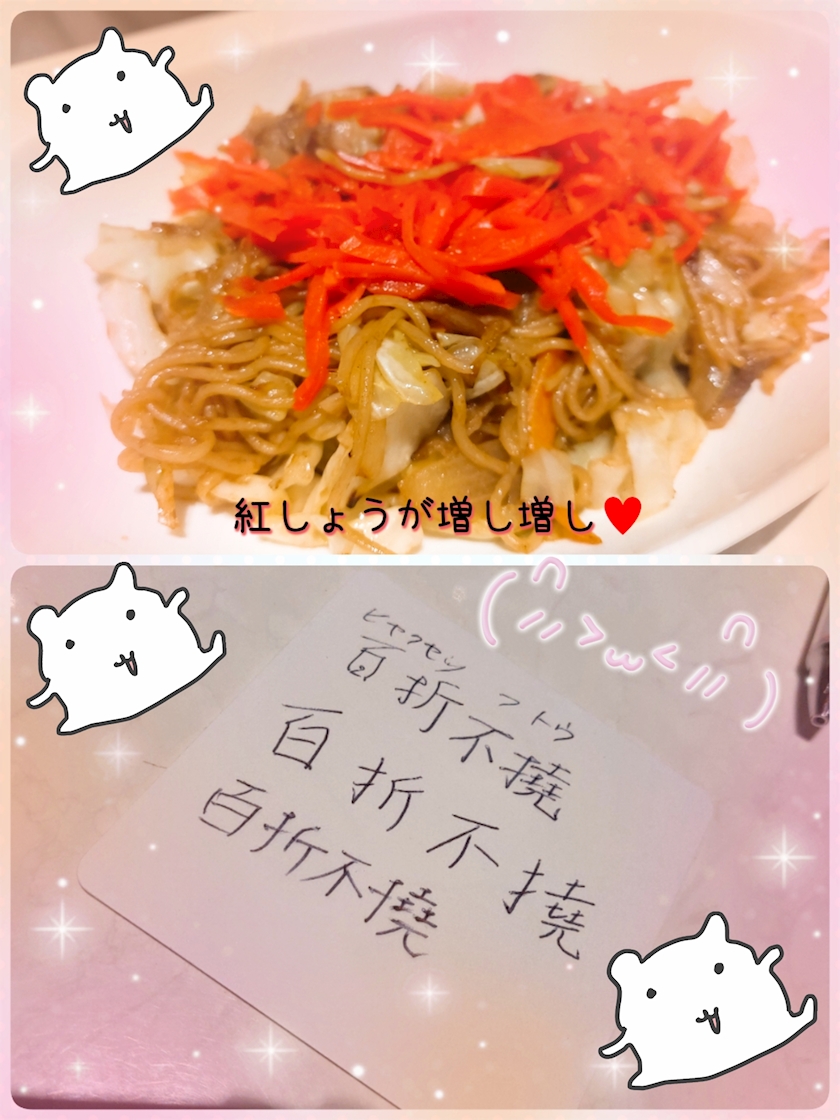 紅しょうが増し増し♥
(∩//>ω<//∩)
ヒャクセツ フトウ
百折不撓
百折不撓
百折不撓